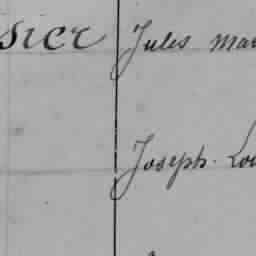 sier Jules Mar
Joseph. Lou